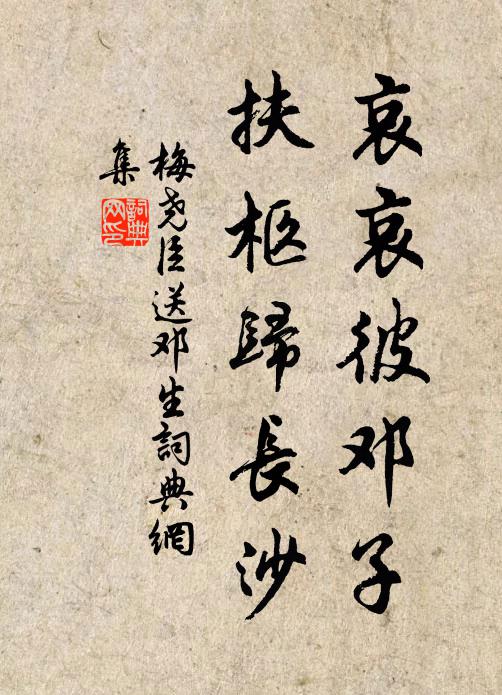 哀哀彼邓子
扶柩歸長沙
梅尧臣送邓生詞典網
集
詞典网印